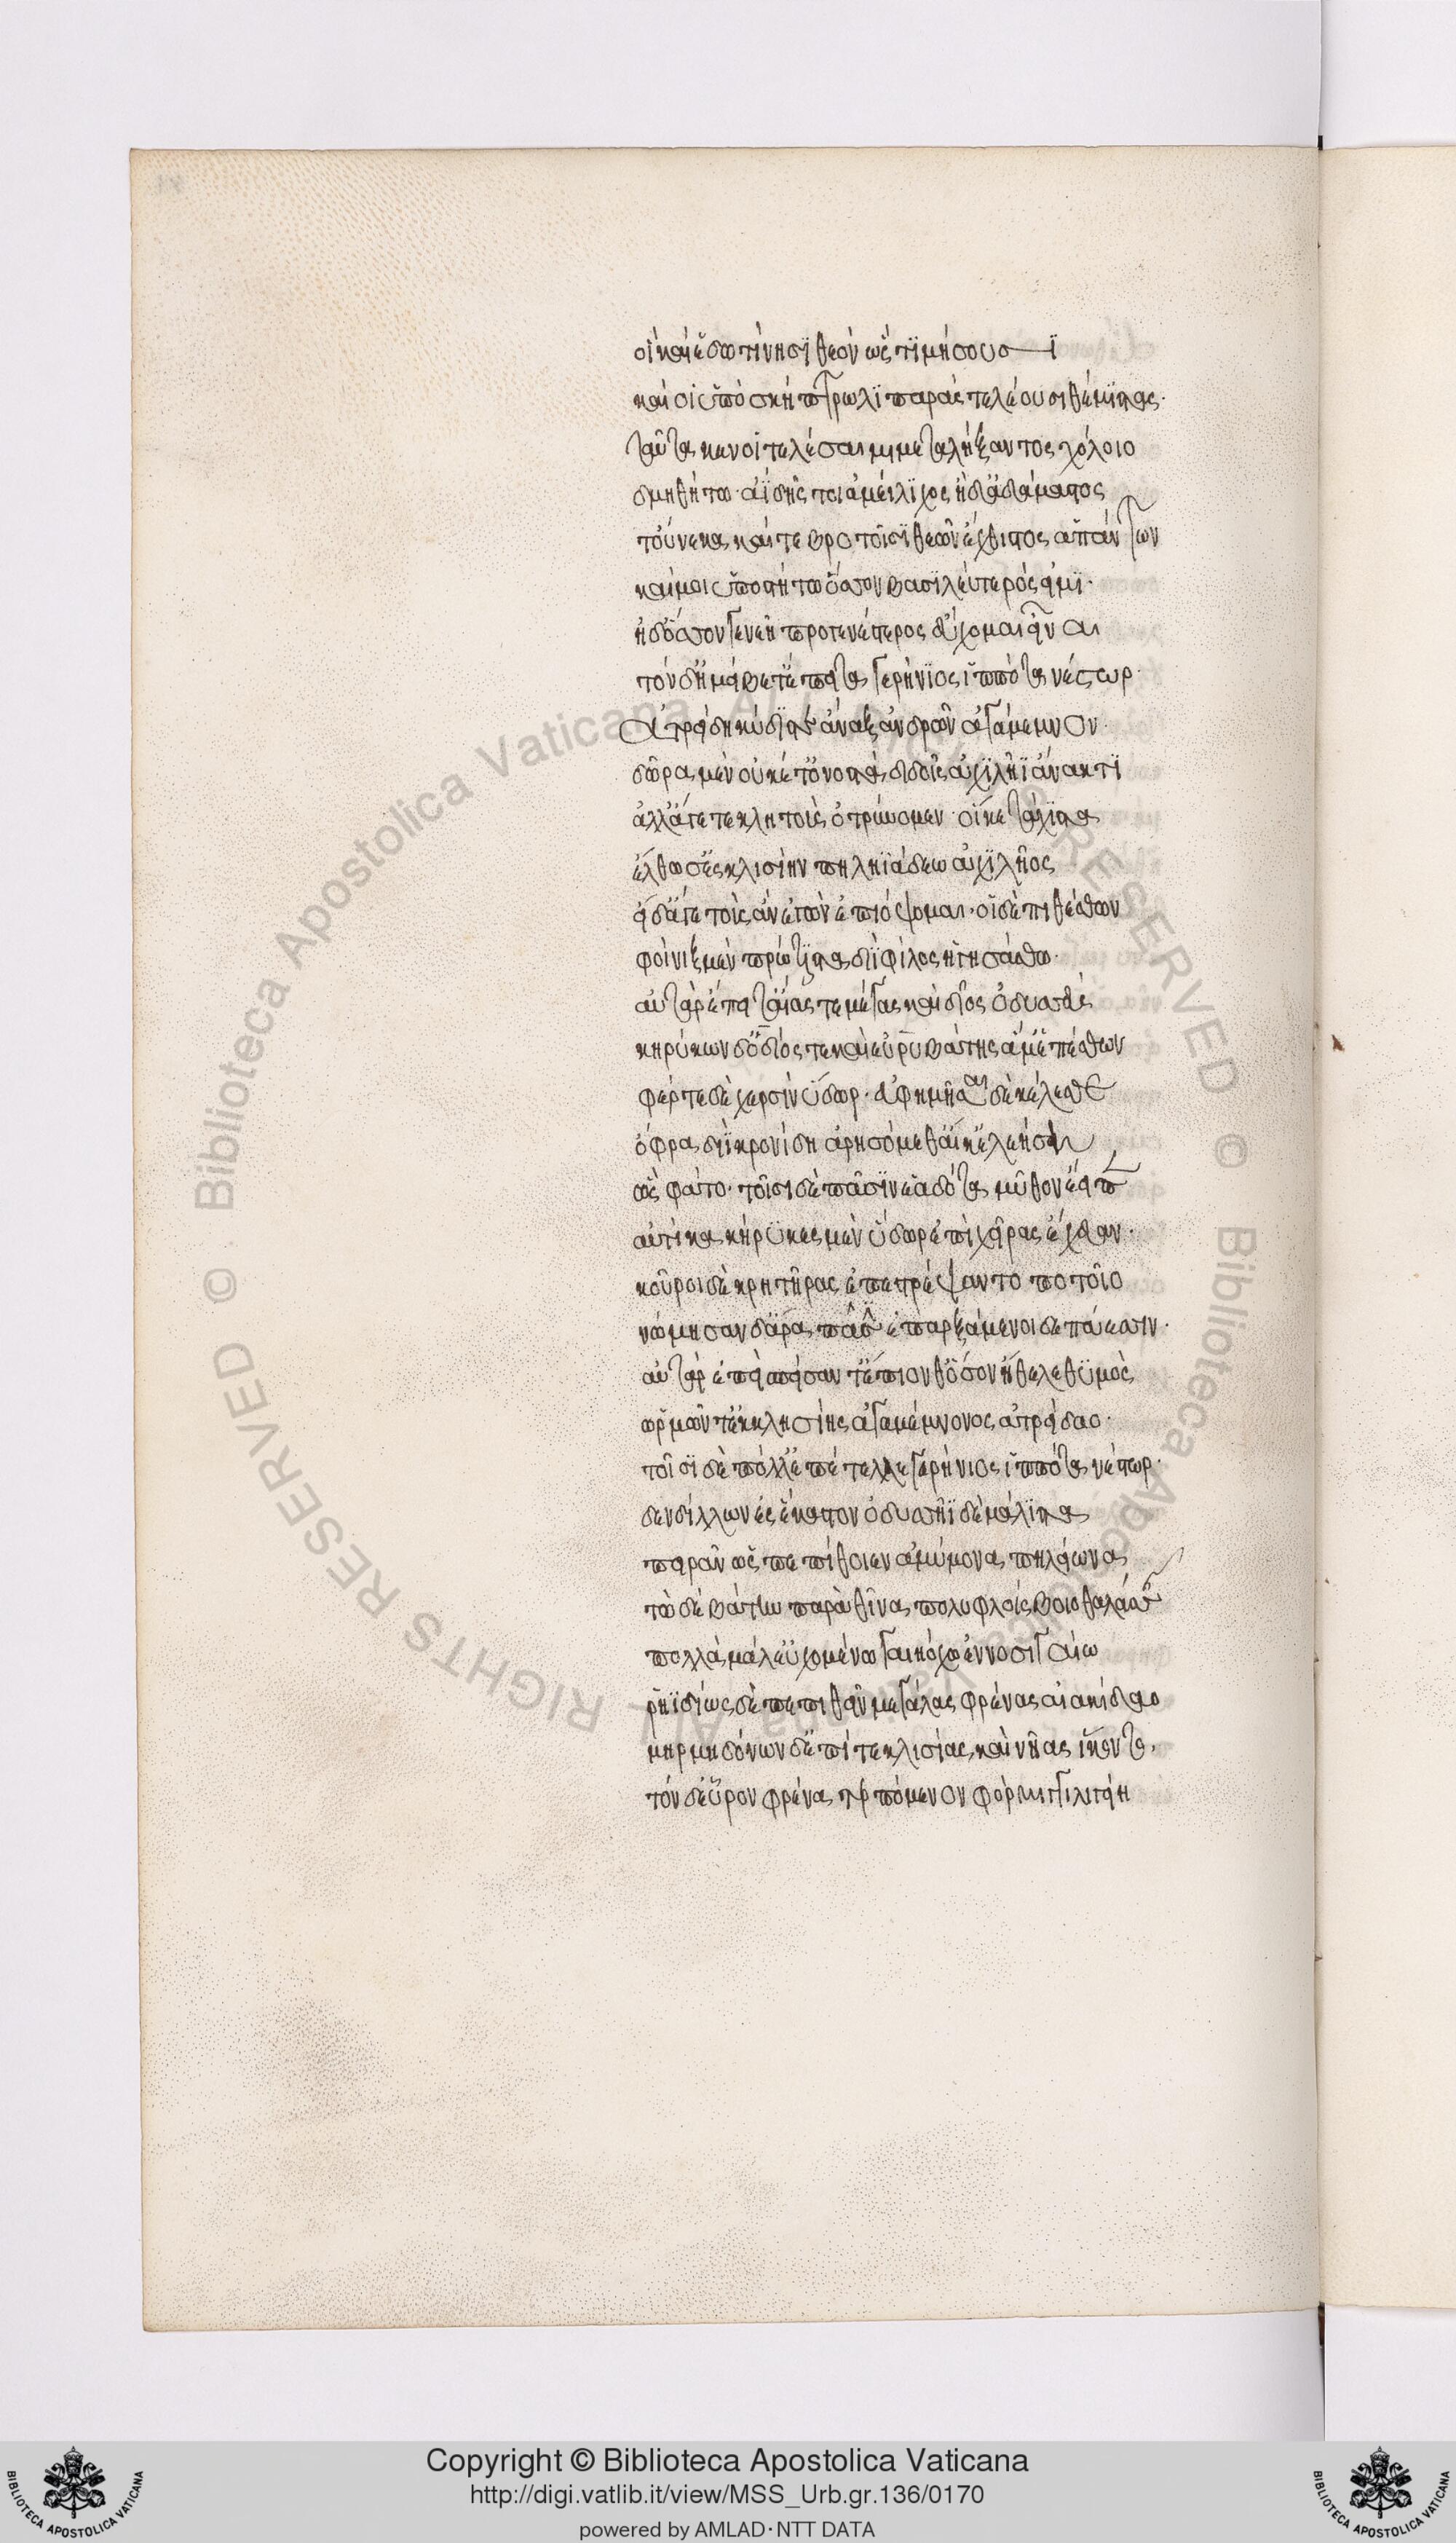 οἵ καί ἑ δωτίνησι θεὸν ὣς τιμήσουσι
καί οἱ ὑπὸ σκήπτρω λιπαρὰς τελέουσι θέμιστας·
ταῦτα κέν οἱ τελέσαιμι μεταλήξαντος χόλοιο
δμηθήτω· ἀΐδης τοι ἀμείλιχος ἠδ' ἀδάμαστος
τούνεκα καί τε βροτοῖσι θεῶν ἔχθιστος ἁπάντων
καί μοι ὑποστήτω ὅσσον βασιλεύτερός εἰμι·
ἠδ' ὅσσον γενεῆ προγενέστερος εὔχομαι εἶναι
τὸν δ' ἠμείβετ' ἔπειτα γερήνιος ἱππότα νέστωρ·
ἀτρείδη κύδιστε ἄναξ ἀνδρῶν ἀγάμεμνον·
δῶρα μὲν οὐκέτ' ὀνοστὰ διδοῖς ἀχιλῆϊ ἄνακτι
ἀλλ' ἄγετε κλητοὺς ὀτρύνομεν· οἵ κε τάχιστα
ἔλθωσ' ἐς κλισίην πηληϊάδεω ἀχιλῆος
εἰ δ' ἄγε τοὺς ἂν ἐγὼν ἐπιόψομαι· οἱ δὲ πιθέσθων
φοῖνιξ μὲν πρώτιστα διῒ φίλος ἡγησάσθω·
αὐτὰρ ἔπειτ' αἴας τε μέγας καὶ δῖος ὀδυσσεὺς
κηρύκων δ' ὀδίος τε καὶ εὐρυβάτης ἅμ' ἑπέσθων
φέρτε δὲ χερσὶν ὕδωρ· εὐφημῆσαι δὲ κέλεσθε
ὄφρα διῒ κρονίδη ἀρησόμεθ' αἴ κ' ἐλεήση
ὣς φάτο· τοῖσι δὲ πᾶσιν ἑαδότα μῦθον ἔειπε
αὐτίκα κήρυκες μὲν ὕδωρ ἐπὶ χεῖρας ἔχευαν·
κοῦροι δὲ κρητῆρας ἐπεστέψαντο ποτοῖο
νώμησαν δ' ἄρα πᾶσιν ἐπαρξάμενοι δεπάεσσιν·
αὐτὰρ ἐπεὶ σπεῖσαν τ' ἔπιον θ' ὅσον ἤθελε θυμὸς
ὡρμῶντ' ἐκ κλισίης ἀγαμέμνονος ἀτρείδαο·
τοῖσι δὲ πόλλ' ἐπέτελλε γερήνιος ἱππότα νέστωρ·
δενδίλλων ἐς ἕκαστον ὀδυσσῆϊ δὲ μάλιστα
πειρᾶν ὡς πεπίθοιεν ἀμύμονα πηλείωνα
τὼ δὲ βάτην παρὰ θῖνα πολυφλοίσβοιο θαλάσσης
πολλὰ μάλ' εὐχομένω γαιηόχω ἐννοσιγαίω
ῥηϊδίως δὲ πεπιθεῖν μεγάλας φρένας αἰακίδαο
μυρμιδόνων δ' ἐπί τε κλισίας καὶ νῆας ἱκέσθην·
τὸν δ' εὗρον φρένα τερπόμενον φόρμιγγι λιγείη
Copyright © Biblioteca Apostolica Vaticana
http://digi.vatlib.it/view/MSS_Urb.gr.136/0170
powered by AMLAD·NTT DATA